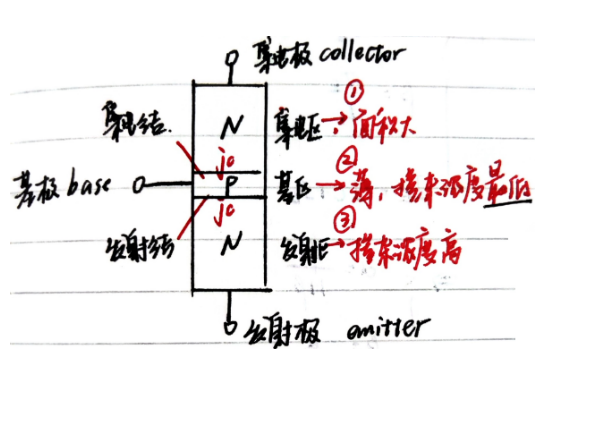 集电极 collector
①
集电结. N 集电区→面积大
jc
②
基极 base P 基区→薄,掺杂浓度最低
jc
③
发射结 N 发射区→掺杂浓度高
发射极 emitter